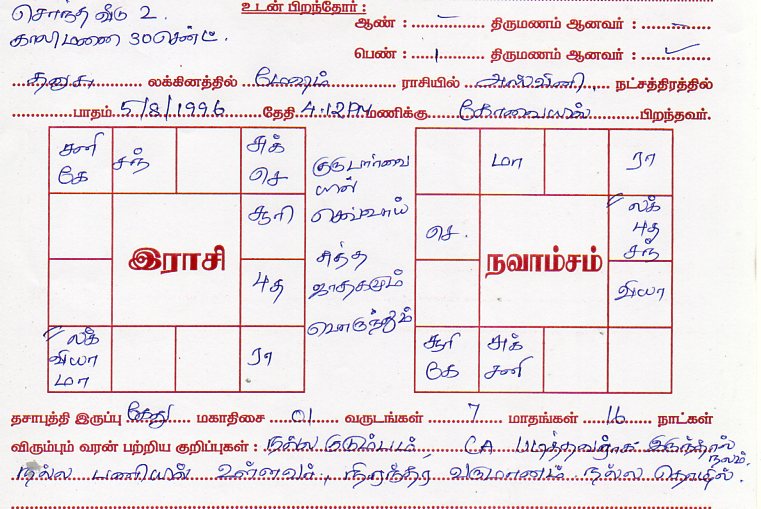 சொந்த வீடு 2.
உடன் பிறந்தோர் :
காலிமனை 30 சென்ட்.
ஆண் : – திருமணம் ஆனவர் : –
பெண் : 1 திருமணம் ஆனவர் :
தனுசு லக்கினத்தில் மேஷம் ராசியில் அஸ்வினி, நட்சத்திரத்தில்
பாதம் 5/8/1996 தேதி 4.12PM மணிக்கு கோவையில் பிறந்தவர்.
சனி
கே
சந்
சுக்
செ
சூரி
இராசி
புத
லக்
வியா
மா
ரா
குருபார்வை
யின்
செவ்வாய்
சுத்த
ஜாதகமும்
பொருந்தும்
மா
ரா
செ.
லக்
புத
சந்
நவாம்சம்
வியா
சூரி
கே
சுக்
சனி
தசாபுத்தி இருப்பு கேது மகாதிசை 01 வருடங்கள் 7 மாதங்கள் 16 நாட்கள்
விரும்பும் வரன் பற்றிய குறிப்புகள் : நல்ல குடும்பம், CA படித்தவராக இருந்தால் நலம்.
நல்ல பணியில் உள்ளவர், நிரந்தர வருமானம் நல்ல தொழில்.